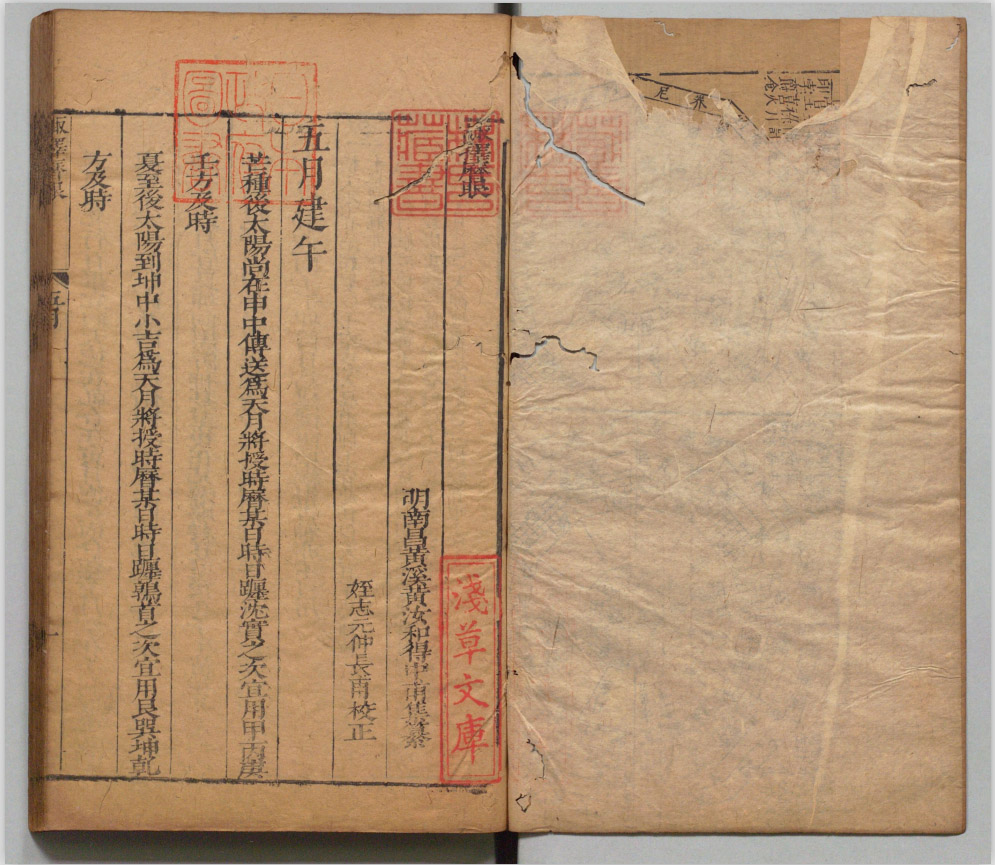 諏擇曆眼
明南昌黃溪黃汝和得中甫集纂
姪志元仲長甫校正
五月建午
芒種後太陽尚在申中傳送為天月將授時曆某日時日躔沈實之次宜用甲丙庚
壬方及時
夏至後太陽到坤中小吉為天月將授時曆某日時日躔鶉首之次宜用艮巽坤乾
方及時
五月
一
淺草文庫